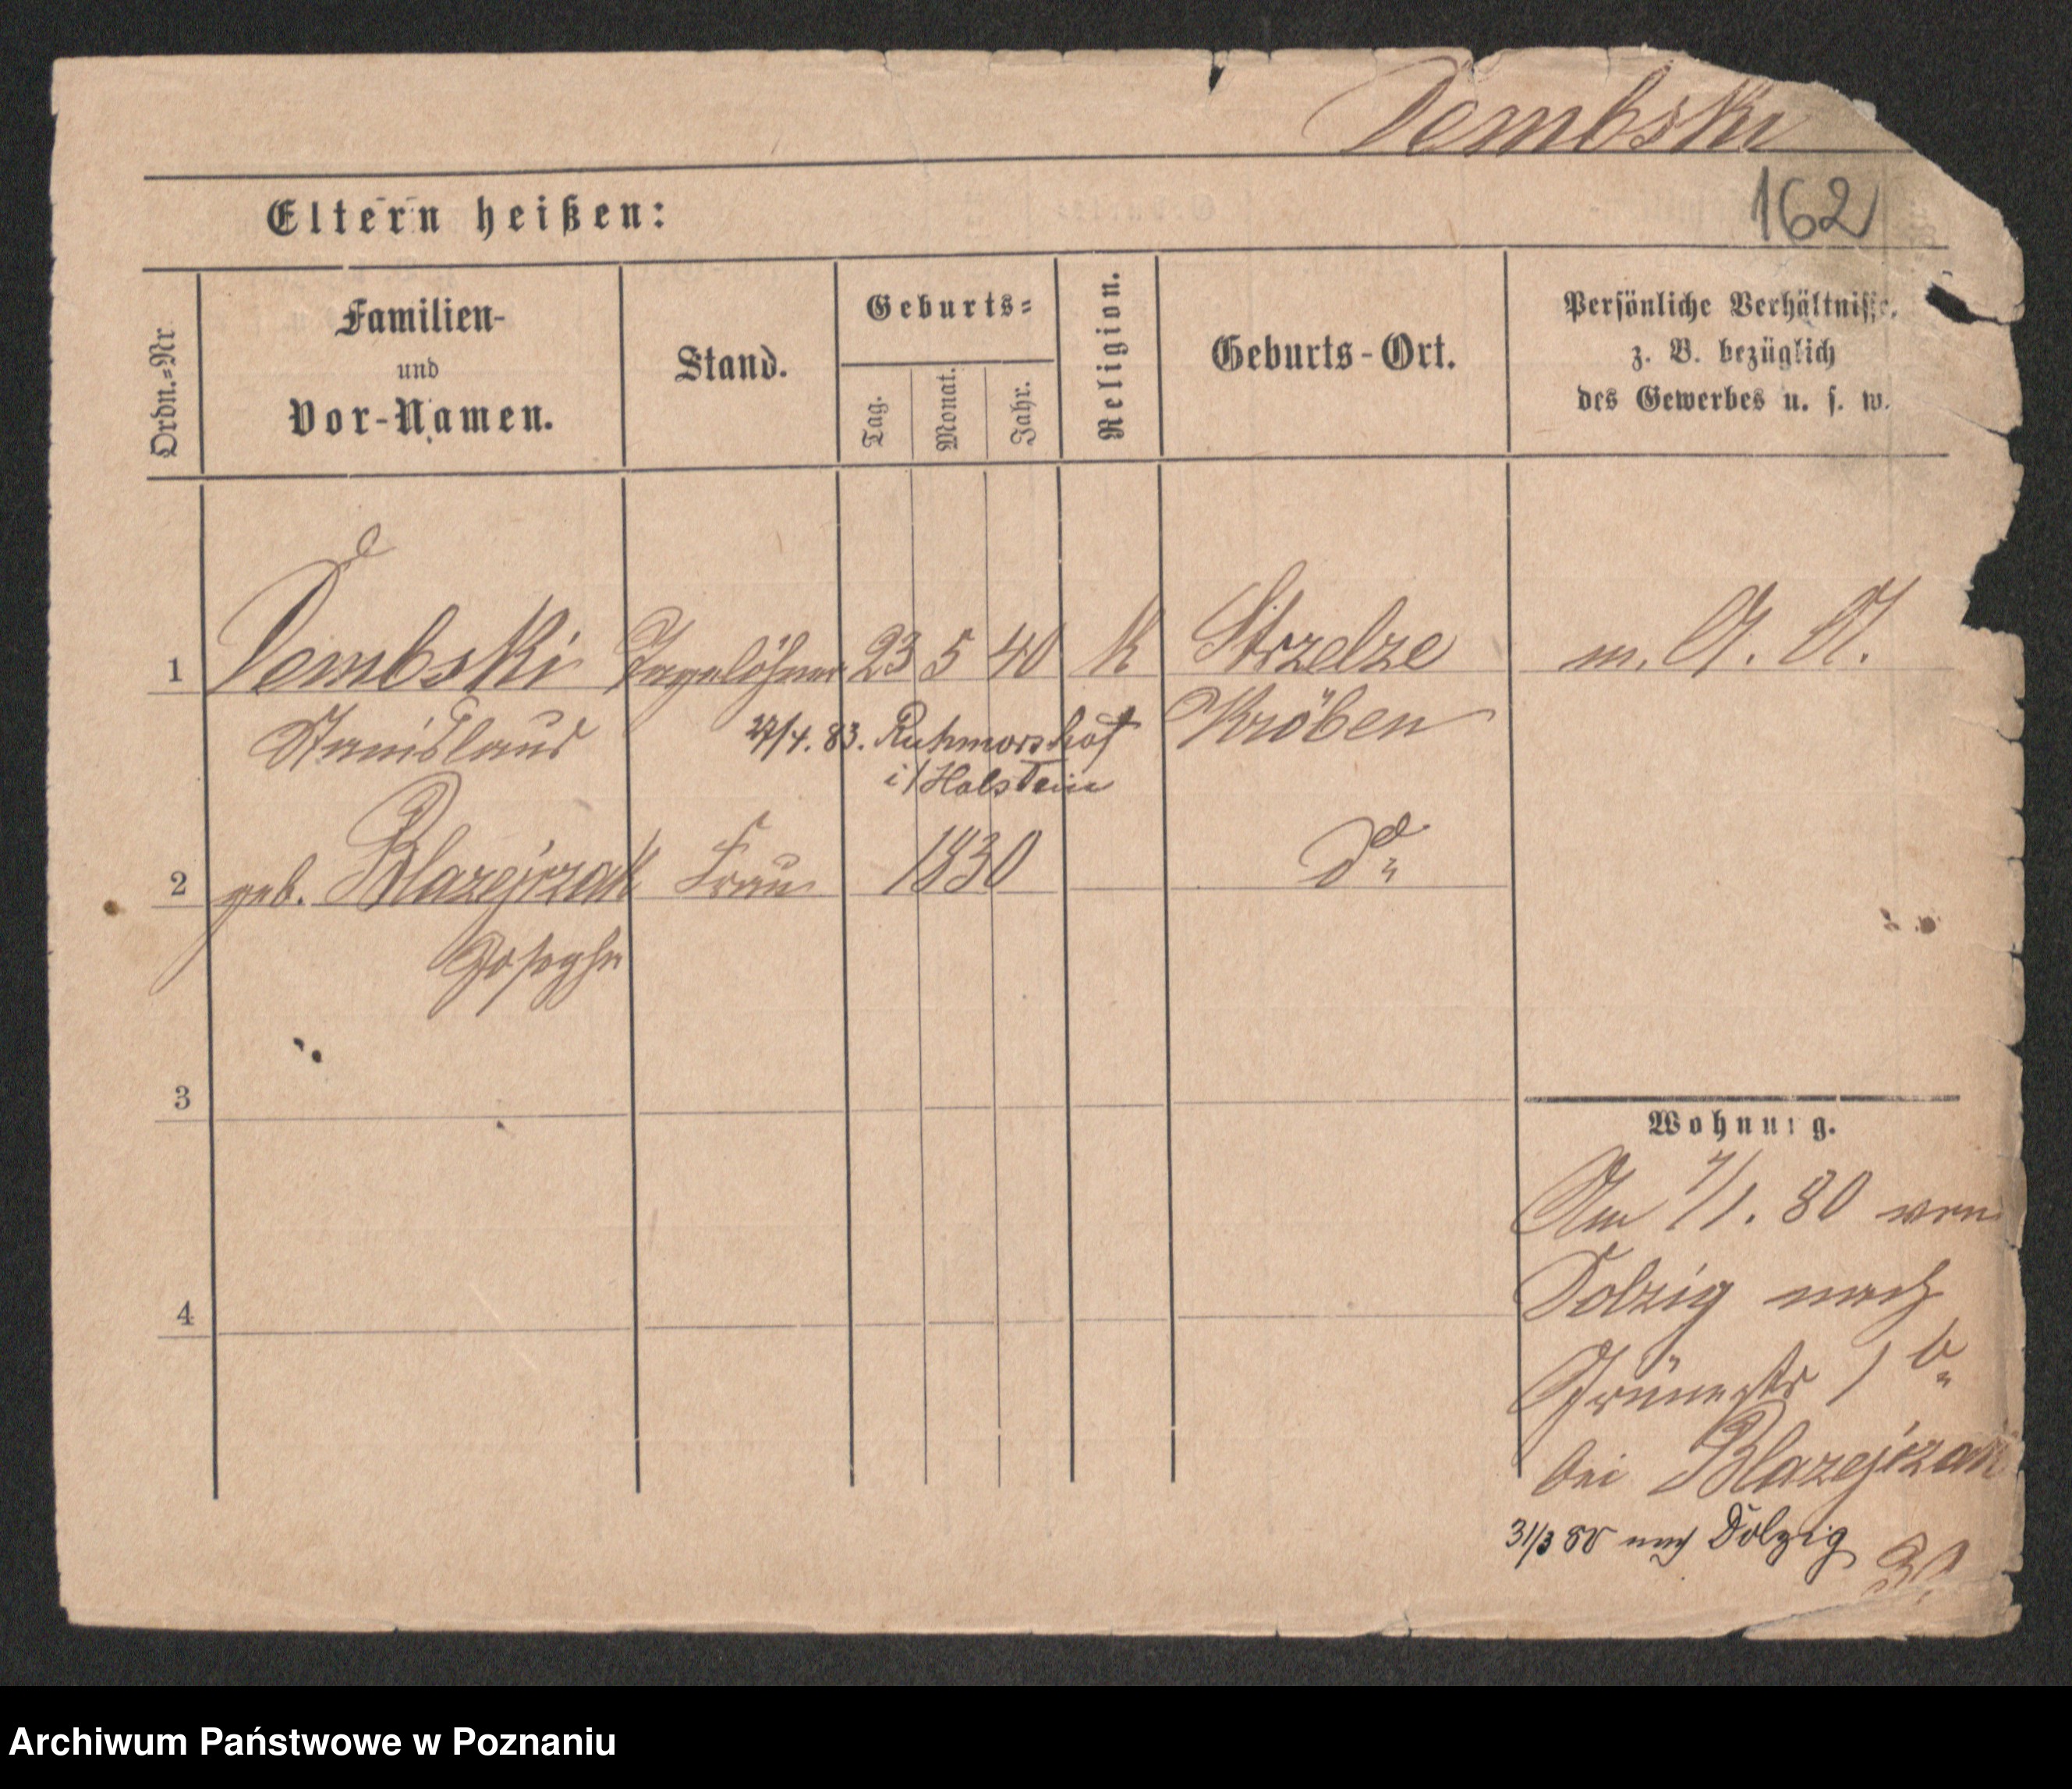 Dembski
162
Eltern heißen:
Ordn.=Nr
Familien-
und
Vor-Namen.
Stand.
Geburts=
Tag.
Monat.
Jahr.
Religion.
Geburts-Ort.
Persönliche Verhältnisse,
z. B. bezüglich
des Gewerbes u. s. w.
1 Dembski Tagelöhner 23 5 40 K Strzelze m. A. A.
Stanislaus 27/4. 83. Ruhmorshof Kröben
i/Holstein
2 geb. Blazejczak Frau 1830 do
Josepha
3
Wohnung.
Am 7/1. 80 von
4
Dolzig nach
Grünestr 1 b
bei Blazejczak
31/3 80 nach Dolzig